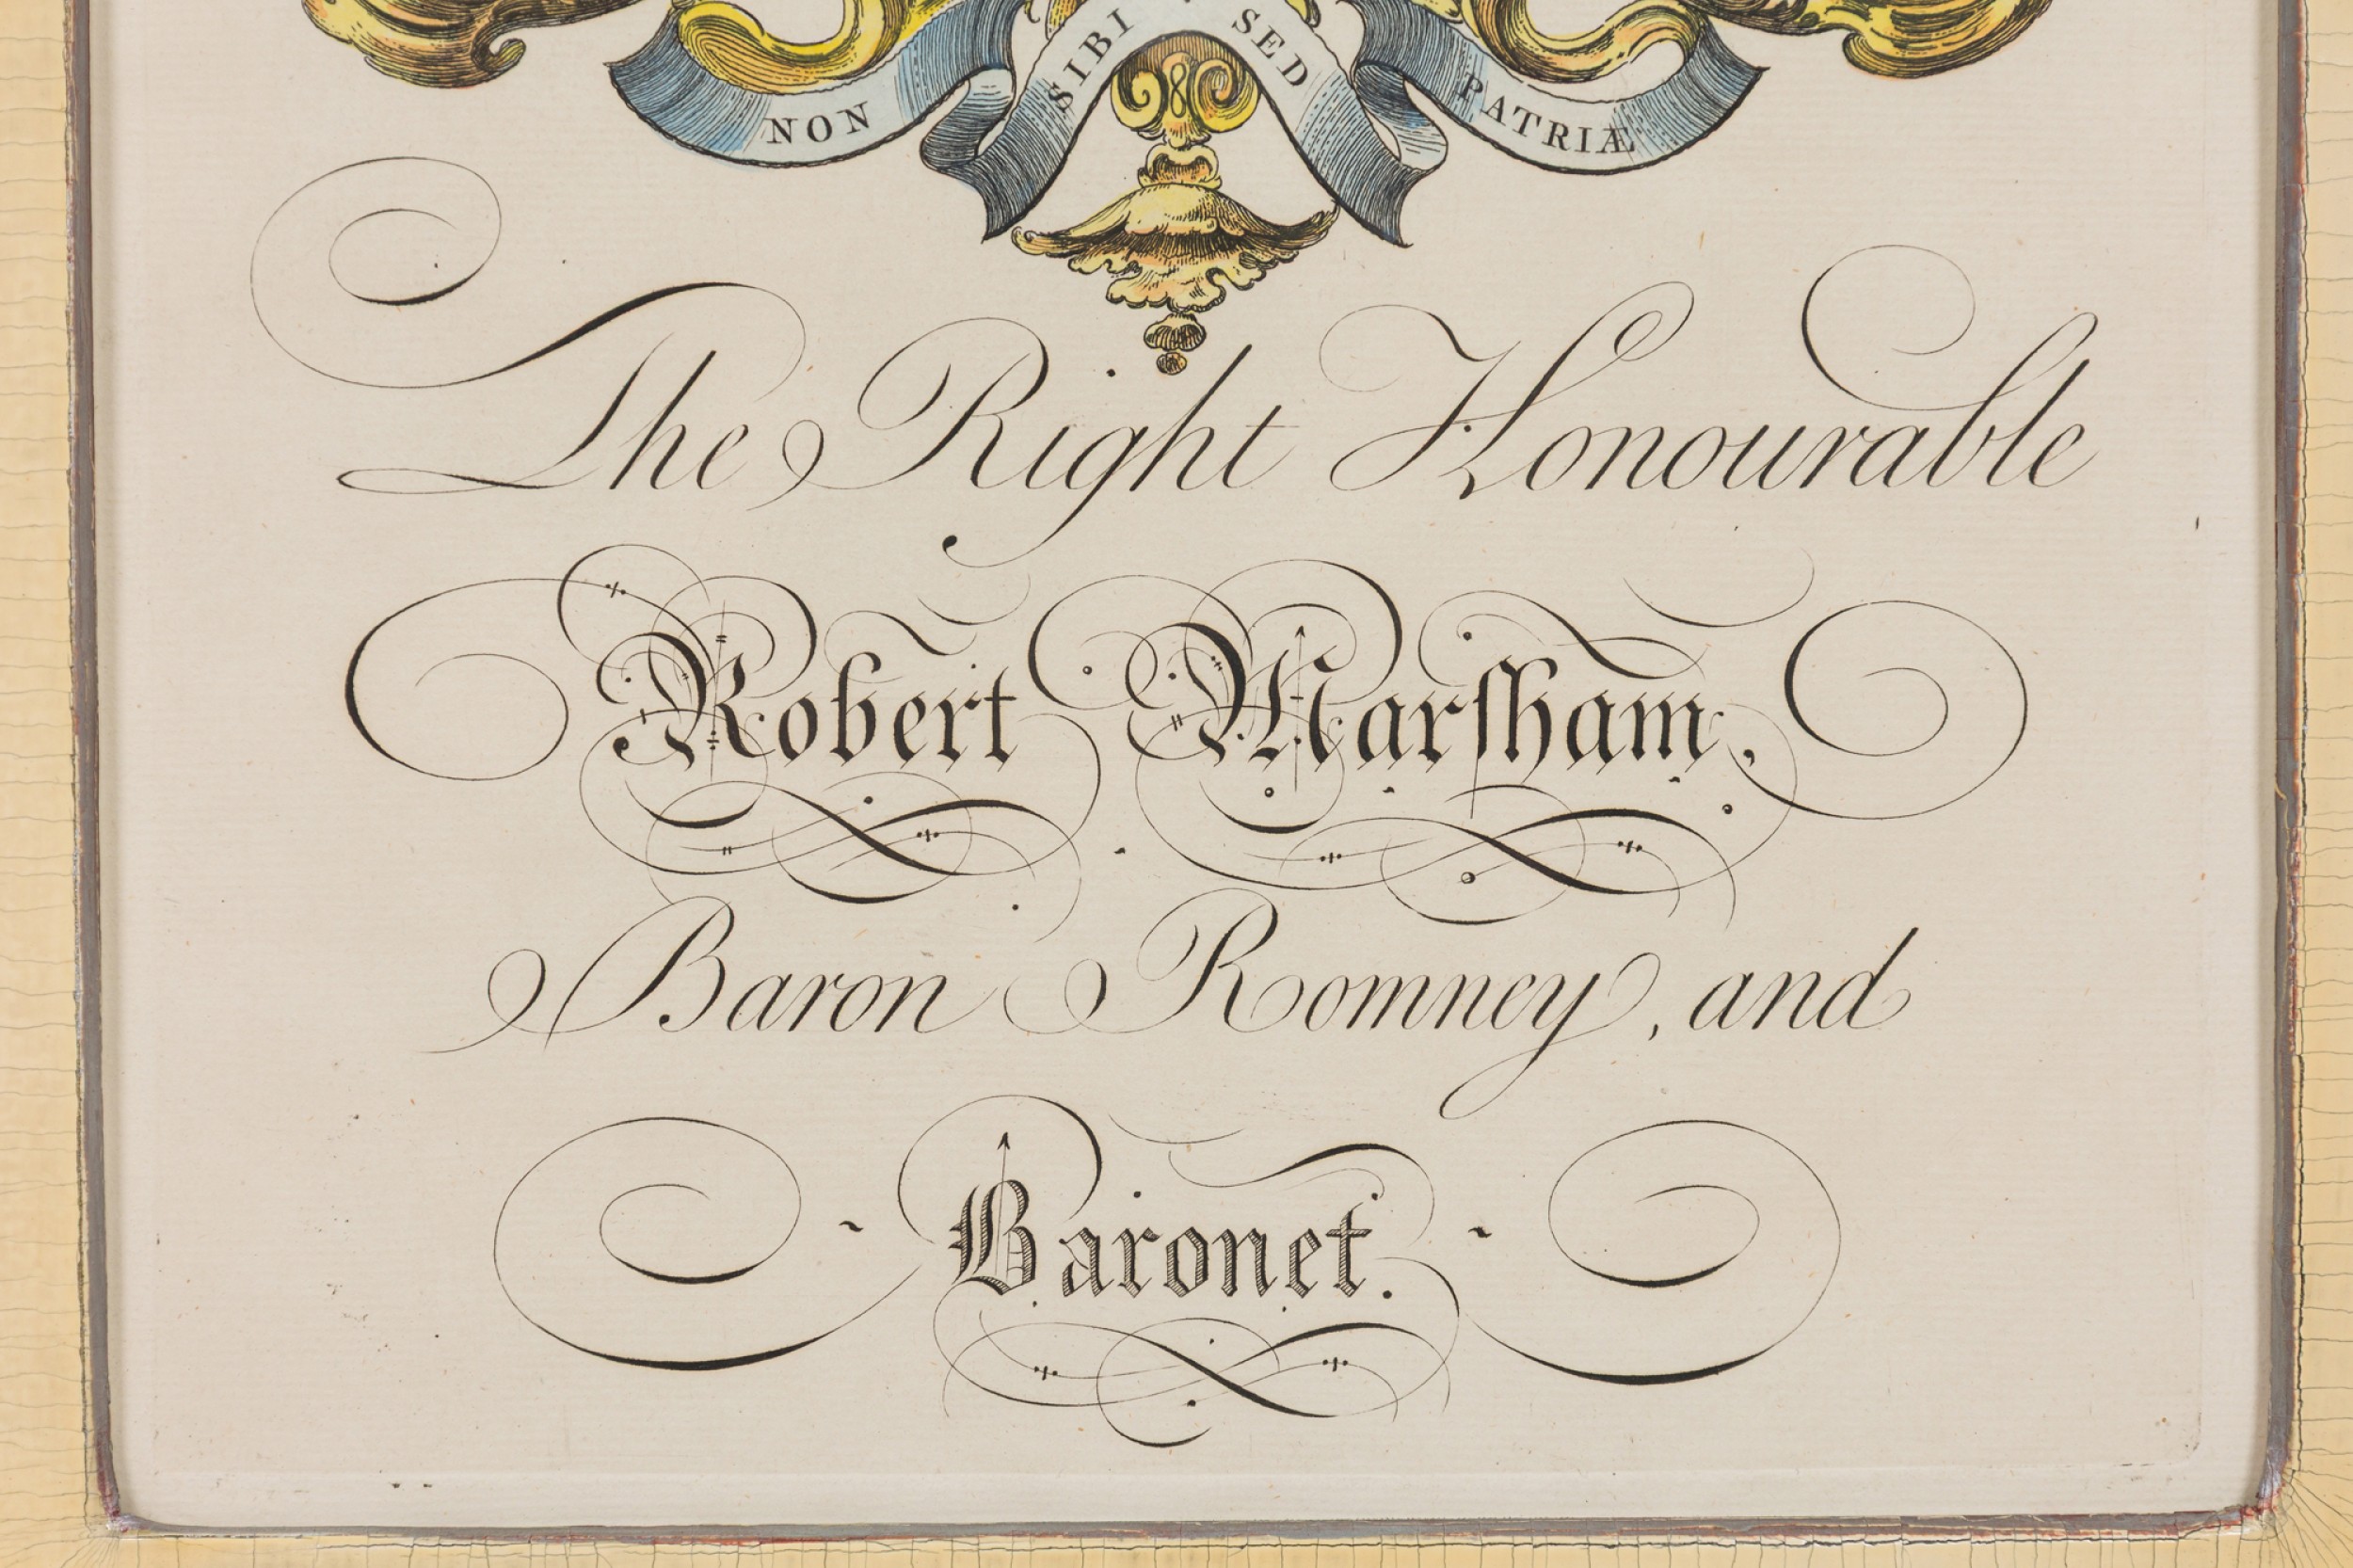 NON SIBI SED PATRIÆ
The Right Honourable
Robert Marſham,
Baron Romney, and
Baronet.